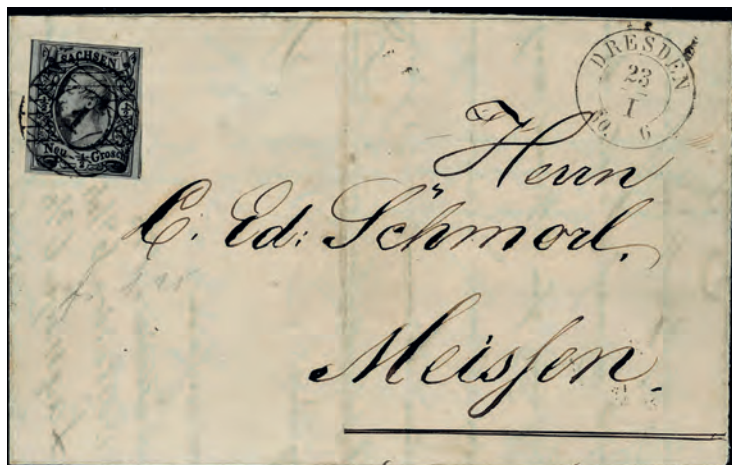 SACHSEN
Neu-½-Grosch
DRESDEN
23
I
60. 6
Herrn
C. Ed: Schmorl,
Meissen.